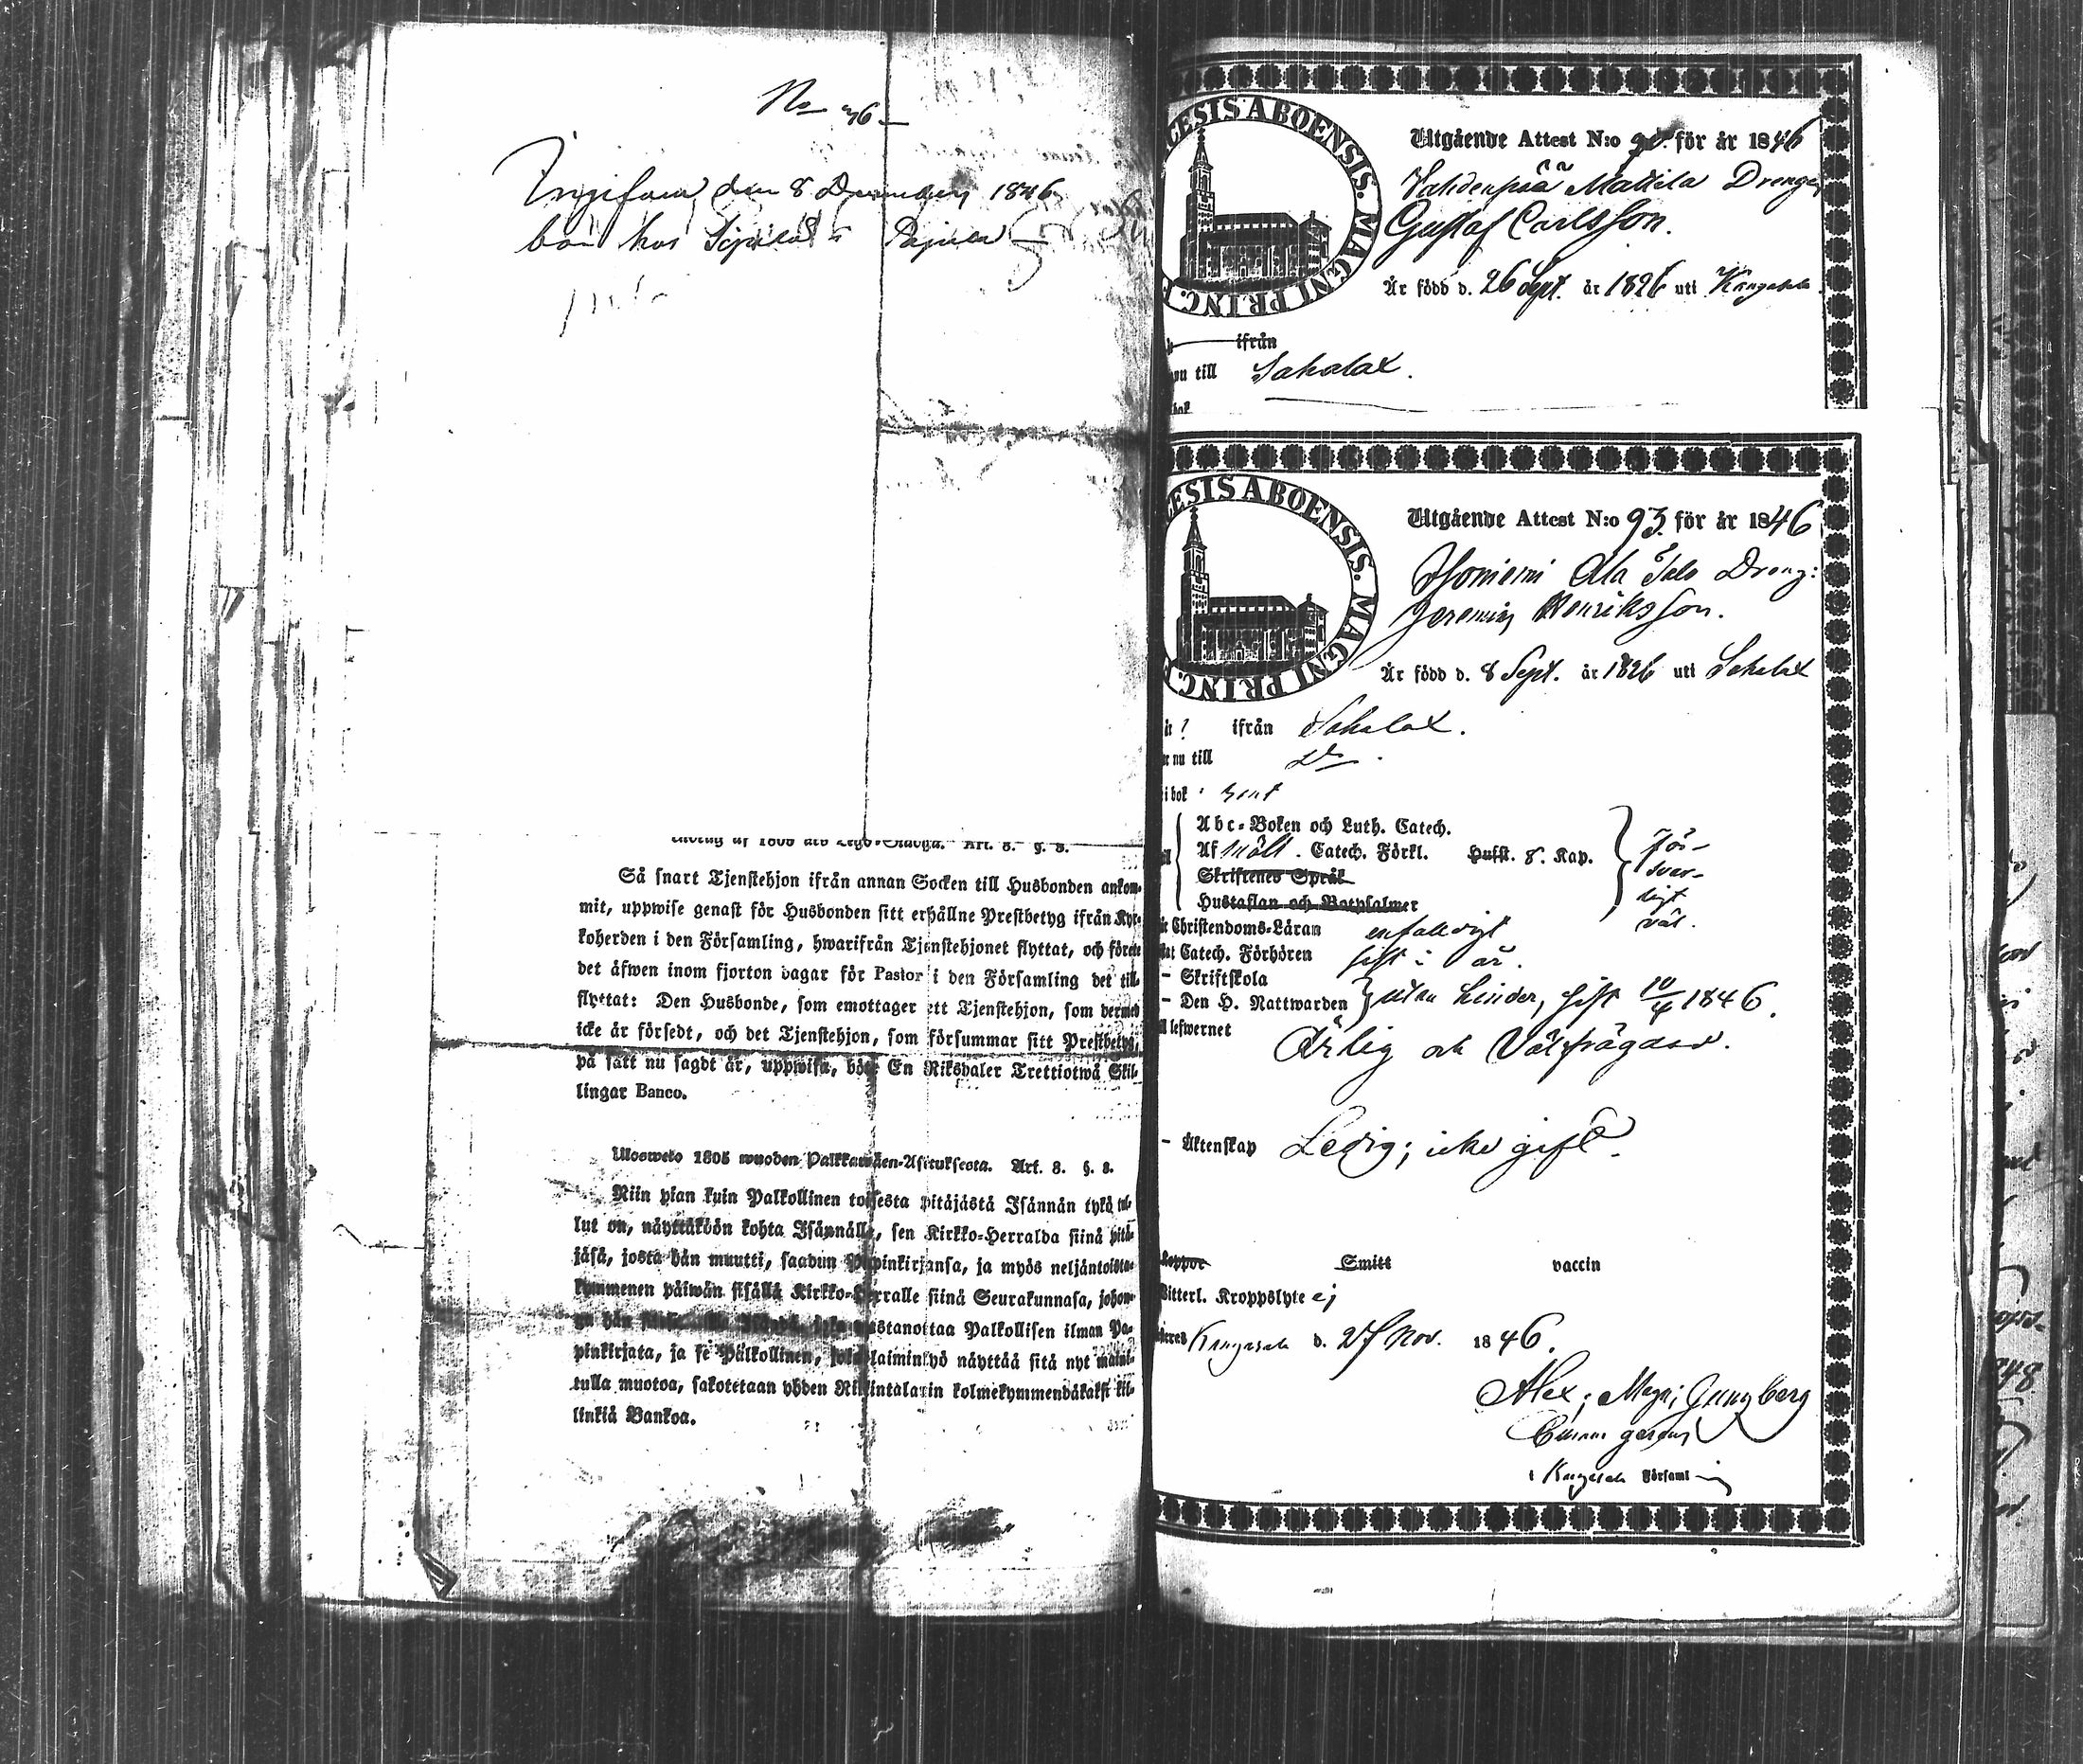 No 76
Ingifven den 8 December 1846
bor hos Sipilä i Pajula
Utdrag af 1805 års Lego-Stadga. Art. 8. §. 8.
Så snart Tjenstehjon ifrån annan Socken till Husbonden ankom-
mit, uppwise genast för Husbonden sitt erhållne Prestbetyg ifrån Kyr-
koherden i den Församling, hwarifrån Tjenstehjonet flyttat, och förete
det äfwen inom fjorton dagar för Pastor i den Församling det till-
flyttat: Den Husbonde, som emottager ett Tjenstehjon, som dermed
icke är försedt, och det Tjenstehjon, som försummar sitt Prestbetyg,
på sätt nu sagdt är, uppwisa, böte En Riksdaler Trettiotwå Skil-
lingar Banco.
Ulosweto 1805 wuoden Palkkawäen-Asetuksesta. Art. 8. §. 8.
Niin pian kuin Palkollinen toisesta pitäjästä Isännän tykö tul-
lut on, näyttäköön kohta Isännälle, sen Kirkko-Herralda siinä pitä-
jäsä, josta hän muutti, saadun Papinkirjansa, ja myös neljäntoista-
kymmenen päiwän sisällä Kirkko-Herralle siinä Seurakunnasa, johon-
ga hän joka wastanottaa Palkollisen ilman Pa-
pinkirjata, ja se Palkollinen, joka laiminlyö näyttää sitä nyt maini-
tulla muotoa, sakotetaan yhden Riikintalarin kolmekymmendäkaksi kil-
linkiä Bankoa.
CESIS ABOENSIS. MAGNI PRINC.
Utgående Attest N:o för år 1846
Mattila Drengen
Gustaf Carlsson.
Är född d. 26 Sept. år 1826 uti Kangasala
ifrån
nu till Sahalax.
bok
CESIS ABOENSIS. MAGNI PRINC.
Utgående Attest N:o 93 för år 1846
Isoniemi Ala Sale Dreng:
Jeremias Henriksson.
Är född d. 8 Sept. år 1826 uti Sahalax
ifrån Sahalax.
nu till Do.
i bok rent
Abc-Boken och Luth. Catech.
Af Möll. Catech. Förkl. Hufst. 8. Kap. För-
Skriftenes Språk svar-
Hustaflan och Botpsalmer ligt
Christendoms-Läran enfaldigt väl.
Catech. Förhören sist i år.
- Skriftskola
- Den H. Nattwarden utan hinder, sist 10/4 1846.
lefwernet Ärlig och Välfrägdad.
- Äktenskap Ledig; icke gift.
Koppor Smitt vaccin
Witterl. Kroppslyte ej
Kangasala d. 27 Nov. 1846.
Alex; Magn; Ljungberg
i Kangasala Församl